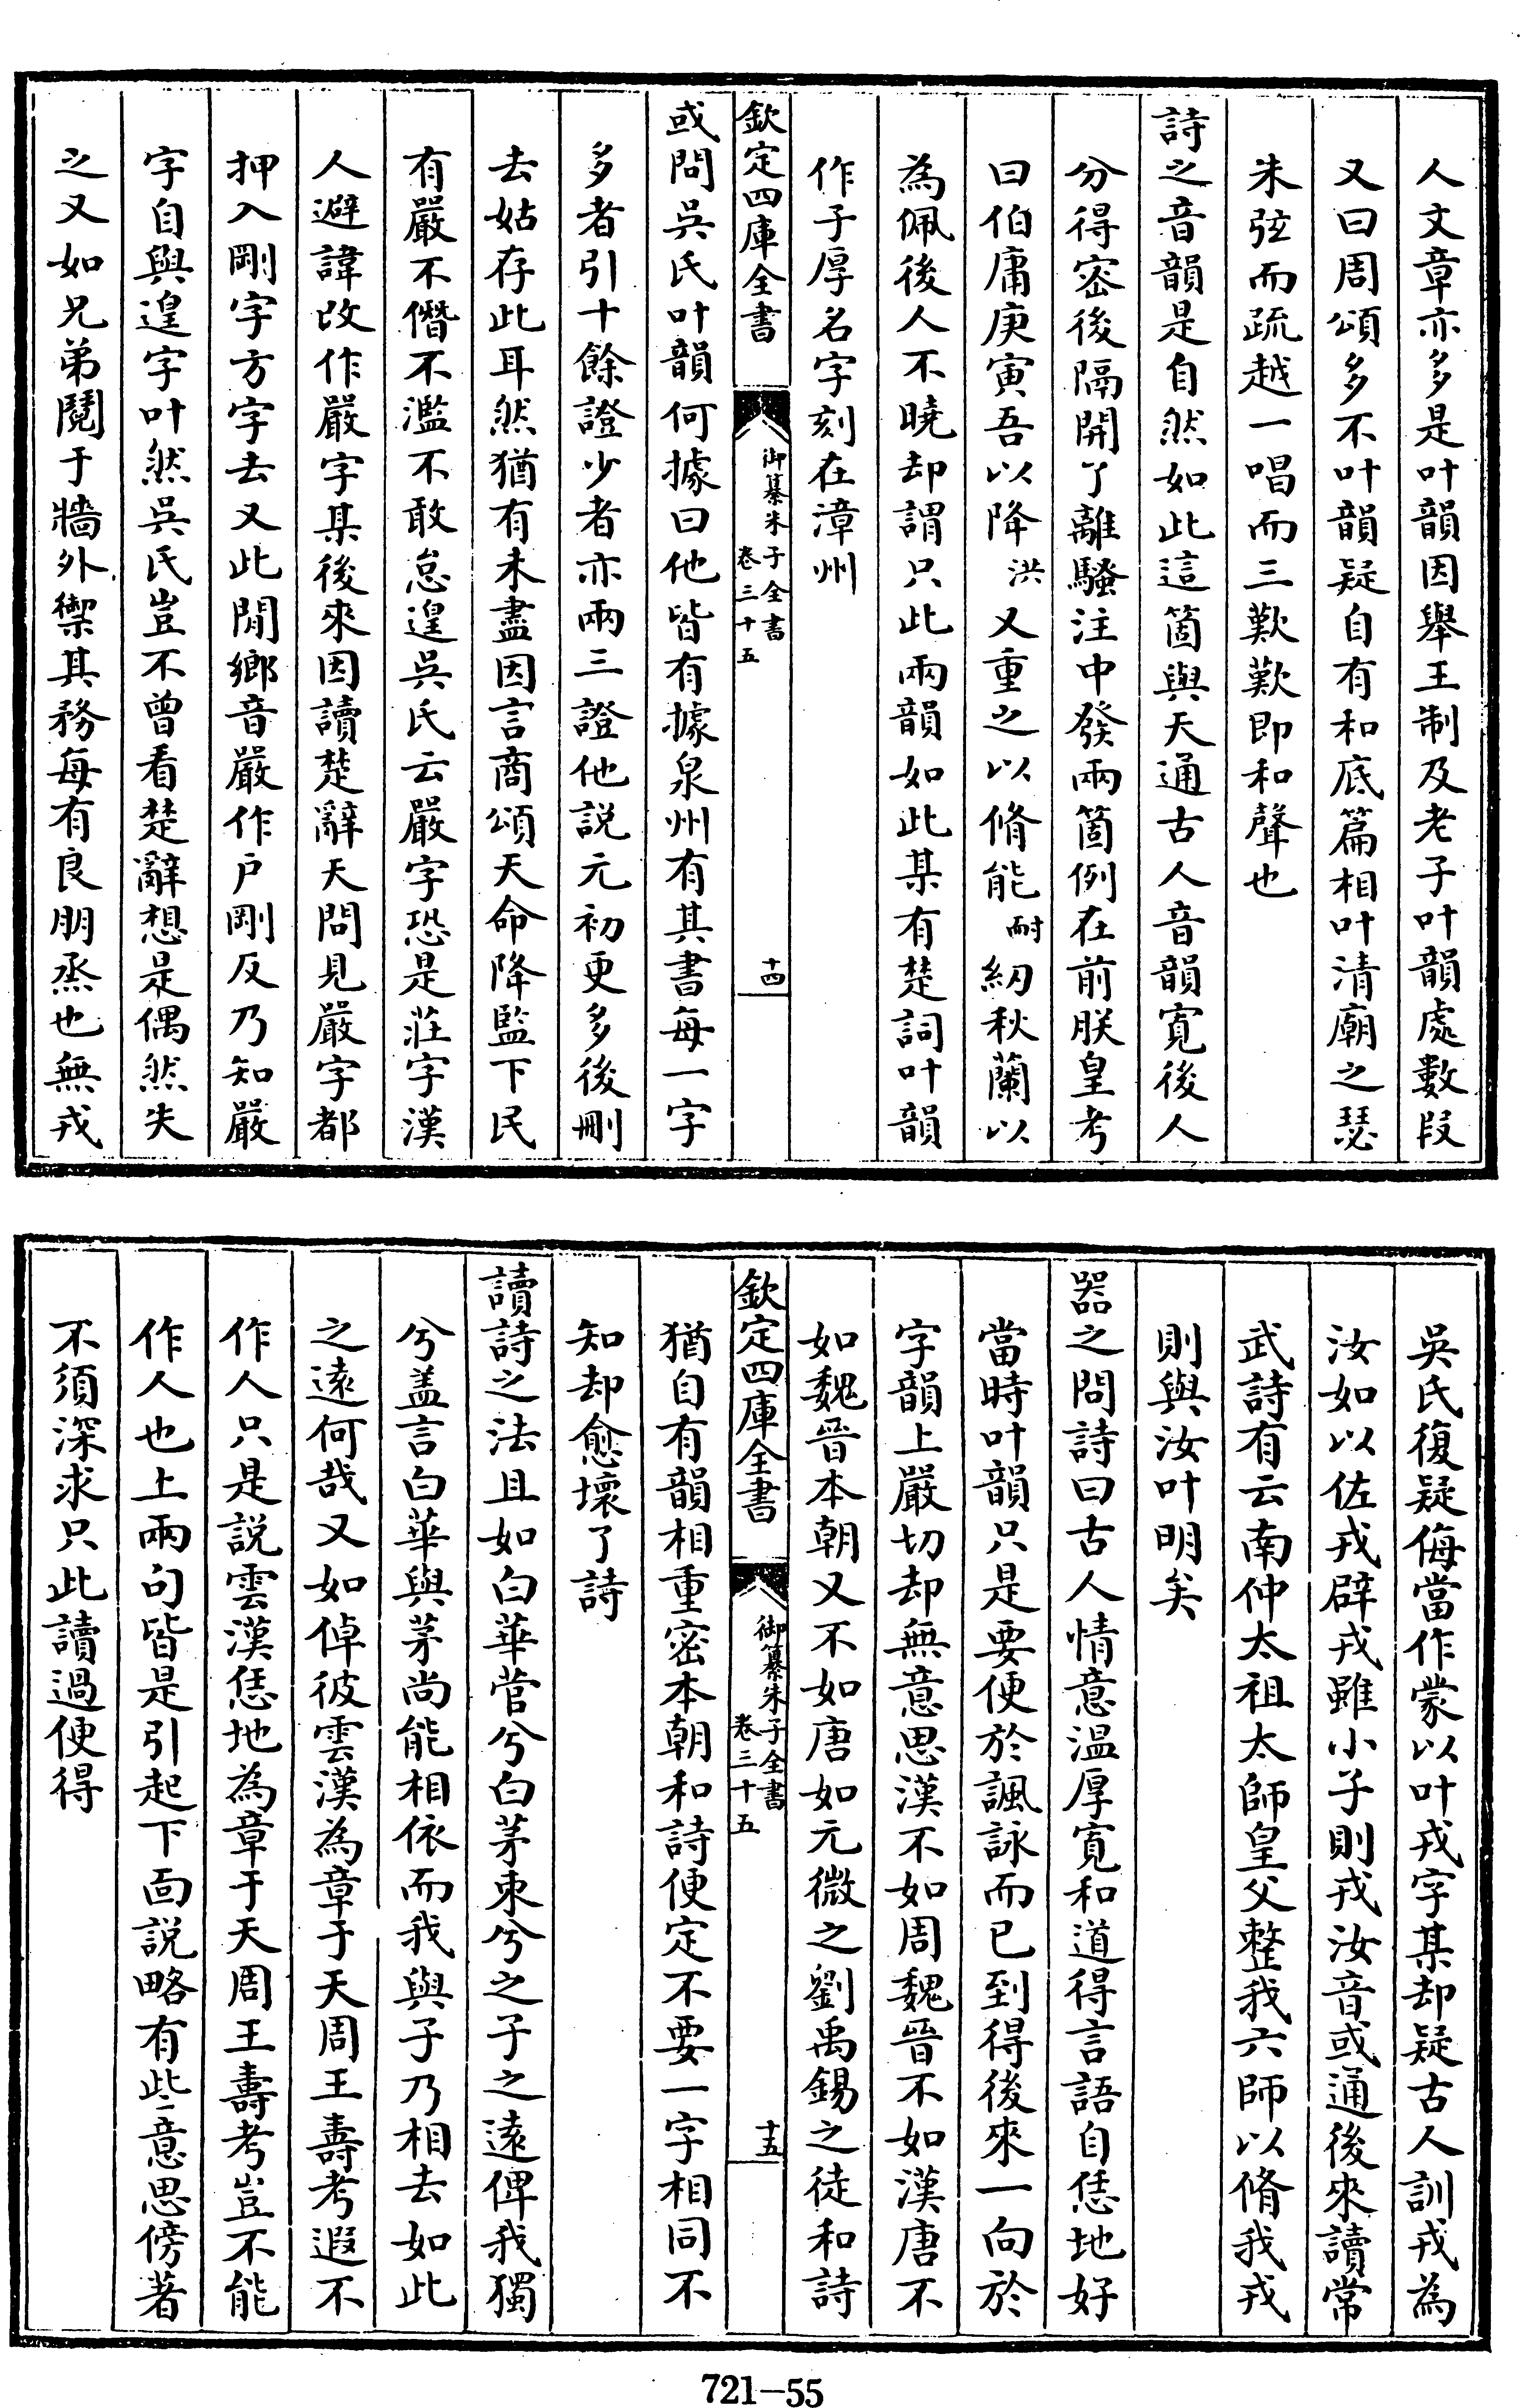 人文章亦多是叶韻因舉王制及老子叶韻處數段
又曰周頌多不叶韻疑自有和底篇相叶清廟之瑟
朱弦而疏越一唱而三歎歎即和聲也
詩之音韻是自然如此這箇與天通古人音韻寛後人
分得宻後隔開了離騷注中發兩箇例在前朕皇考
曰伯庸庚寅吾以降洪又重之以脩能耐紉秋蘭以
為佩後人不曉却謂只此兩韻如此某有楚詞叶韻
作子厚名字刻在漳州
欽定四庫全書 御纂朱子全書 卷三十五 十四
或問吳氏叶韻何據曰他皆有據泉州有其書每一字
多者引十餘證少者亦兩三證他説元初更多後刪
去姑存此耳然猶有未盡因言商頌天命降監下民
有嚴不僭不濫不敢怠遑吳氏云嚴字恐是莊字漢
人避諱改作嚴字某後來因讀楚辭天問見嚴字都
押入剛字方字去又此間鄉音嚴作户剛反乃知嚴
字自與遑字叶然吳氏豈不曾看楚辭想是偶然失
之又如兄弟鬩于牆外禦其務每有良朋烝也無戎
吳氏復疑侮當作蒙以叶戎字某却疑古人訓戎為
汝如以佐戎辟戎雖小子則戎汝音或通後來讀常
武詩有云南仲太祖太師皇父整我六師以脩我戎
則與汝叶明矣
器之問詩曰古人情意温厚寛和道得言語自恁地好
當時叶韻只是要便於諷詠而已到得後來一向於
字韻上嚴切却無意思漢不如周魏晉不如漢唐不
如魏晉本朝又不如唐如元微之劉禹錫之徒和詩
欽定四庫全書 御纂朱子全書 卷三十五 十五
猶自有韻相重密本朝和詩便定不要一字相同不
知却愈壞了詩
讀詩之法且如白華菅兮白茅束兮之子之遠俾我獨
兮盖言白華與茅尚能相依而我與子乃相去如此
之遠何哉又如倬彼雲漢為章于天周王壽考遐不
作人只是説雲漢恁地為章于天周王壽考豈不能
作人也上兩句皆是引起下面説略有些意思傍著
不須深求只此讀過便得
721-55